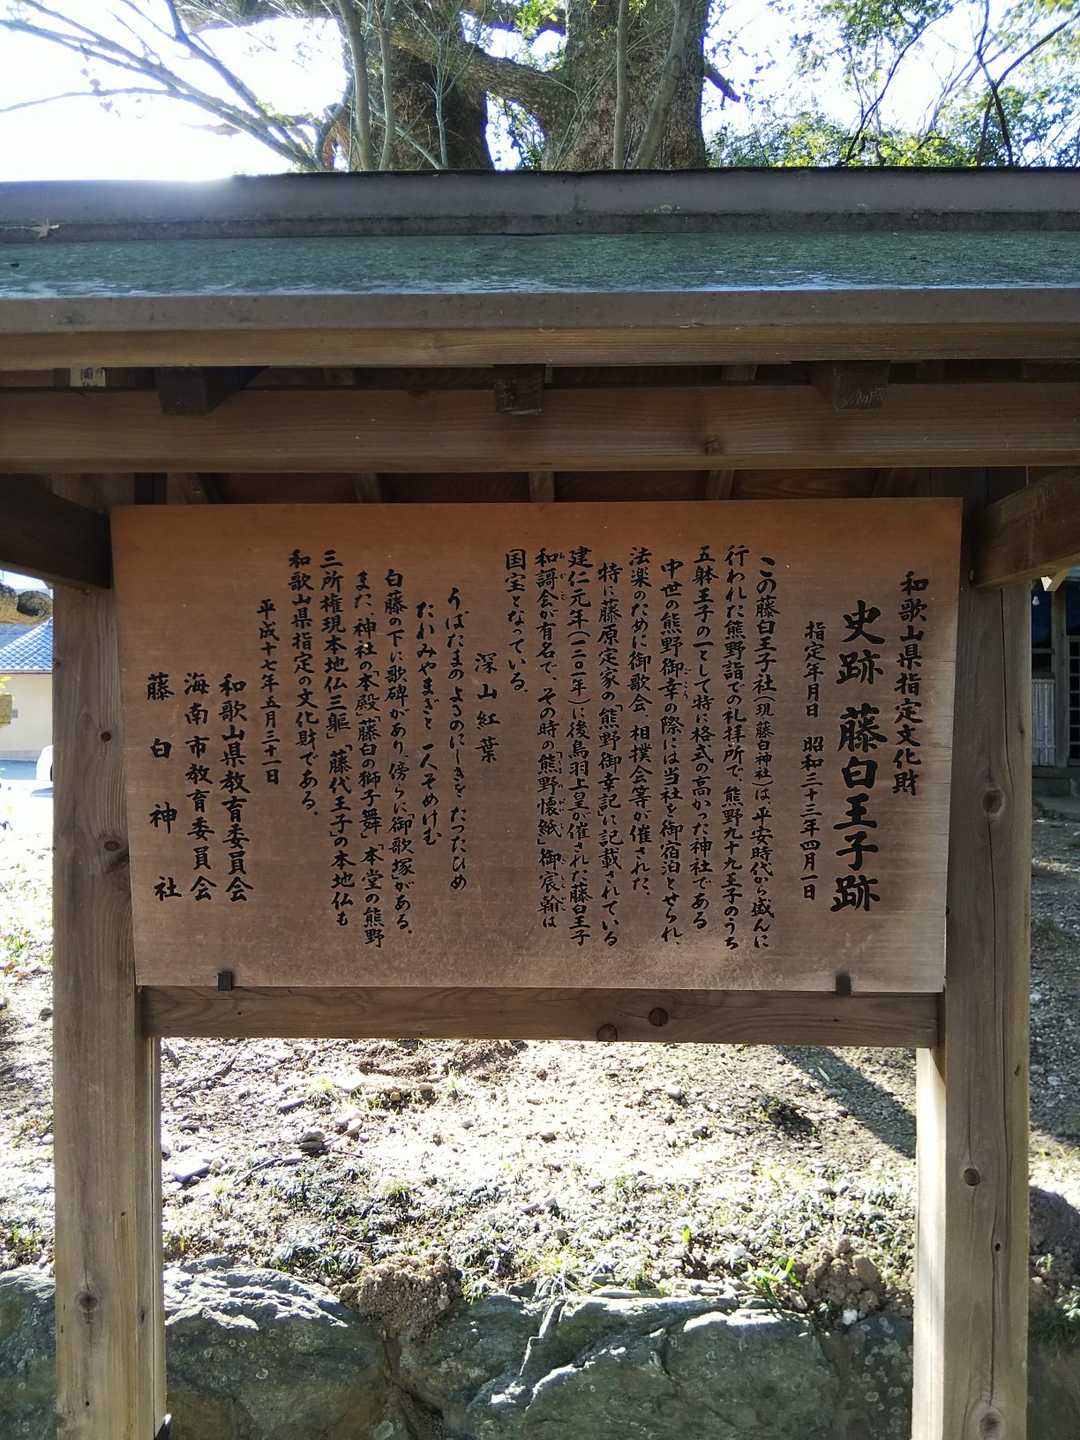 和歌山県指定文化財
史跡 藤白王子跡
指定年月日 昭和三十三年四月一日
この藤白王子社(現藤白神社)は、平安時代から盛んに
行われた熊野詣での礼拝所で、熊野九十九王子のうち
五躰王子の一として特に格式の高かった神社である
中世の熊野御幸の際には当社を御宿泊とせられ、
法楽のために御歌会、相撲会等が催された。
特に藤原定家の「熊野御幸記」に記載されている
建仁元年(一二〇一年)に後鳥羽上皇が催された藤白王子
和謌会が有名で、その時の「熊野懐紙」御宸翰は
国宝となっている。
深山紅葉
うばたまのよるのにしきをたつたひめ
たれみやまぎと一人そめけむ
白藤の下に歌碑があり、傍らに「御歌塚がある。
また、神社の本殿」「藤白の獅子舞」「本堂の熊野
三所権現本地仏三躯」「藤代王子」の本地仏も
和歌山県指定の文化財である。
平成十七年五月三十一日
和歌山県教育委員会
海南市教育委員会
藤白神社